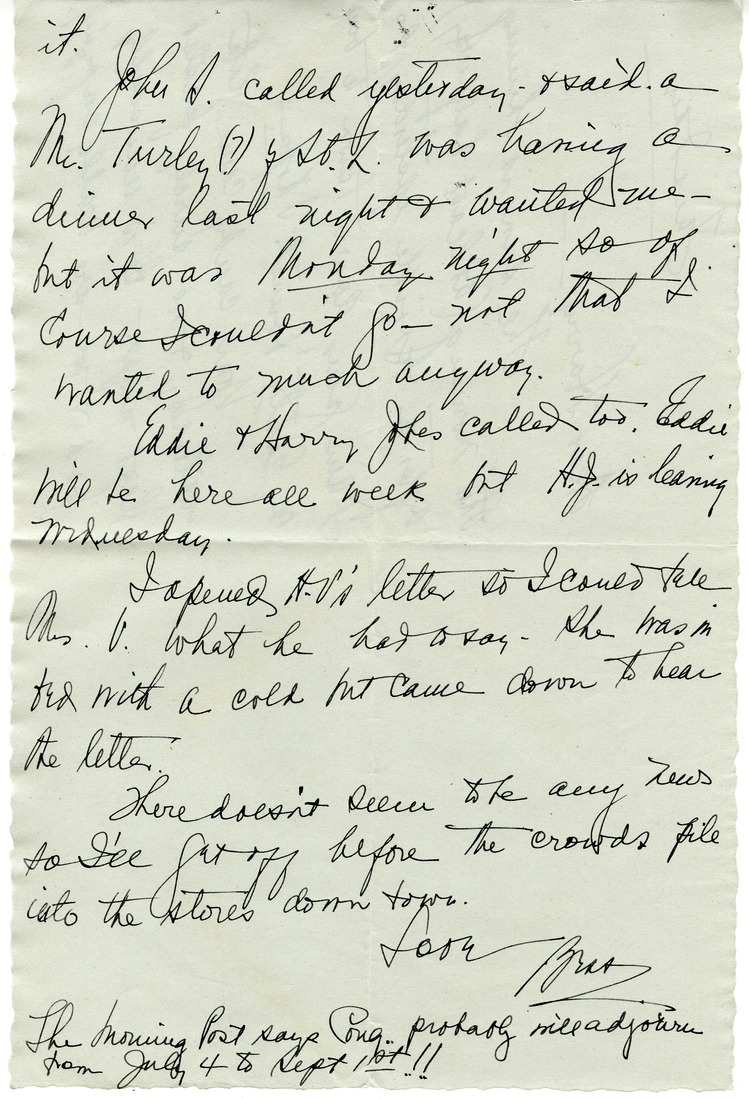 it.
John S. called yesterday - & said a
Mr. Turley (?) of St. L. was having a
dinner last night & wanted me -
but it was Monday night so of
course I couldn't go - not that I
wanted to much anyway.
Eddie & Harry Jobes called too. Eddie
will be here all week but H.J. is leaving
Wednesday.
I opened H.V's letter so I could tell
Mrs. V. what he had to say - She was in
bed with a cold but came down to hear
the letter.
There doesn't seem to be any news
so I'll get off before the crowds pile
into the stores down town.
Love Bess
The Morning Post says Cong. probably will adjourn
from July 4 to Sept 1st!!